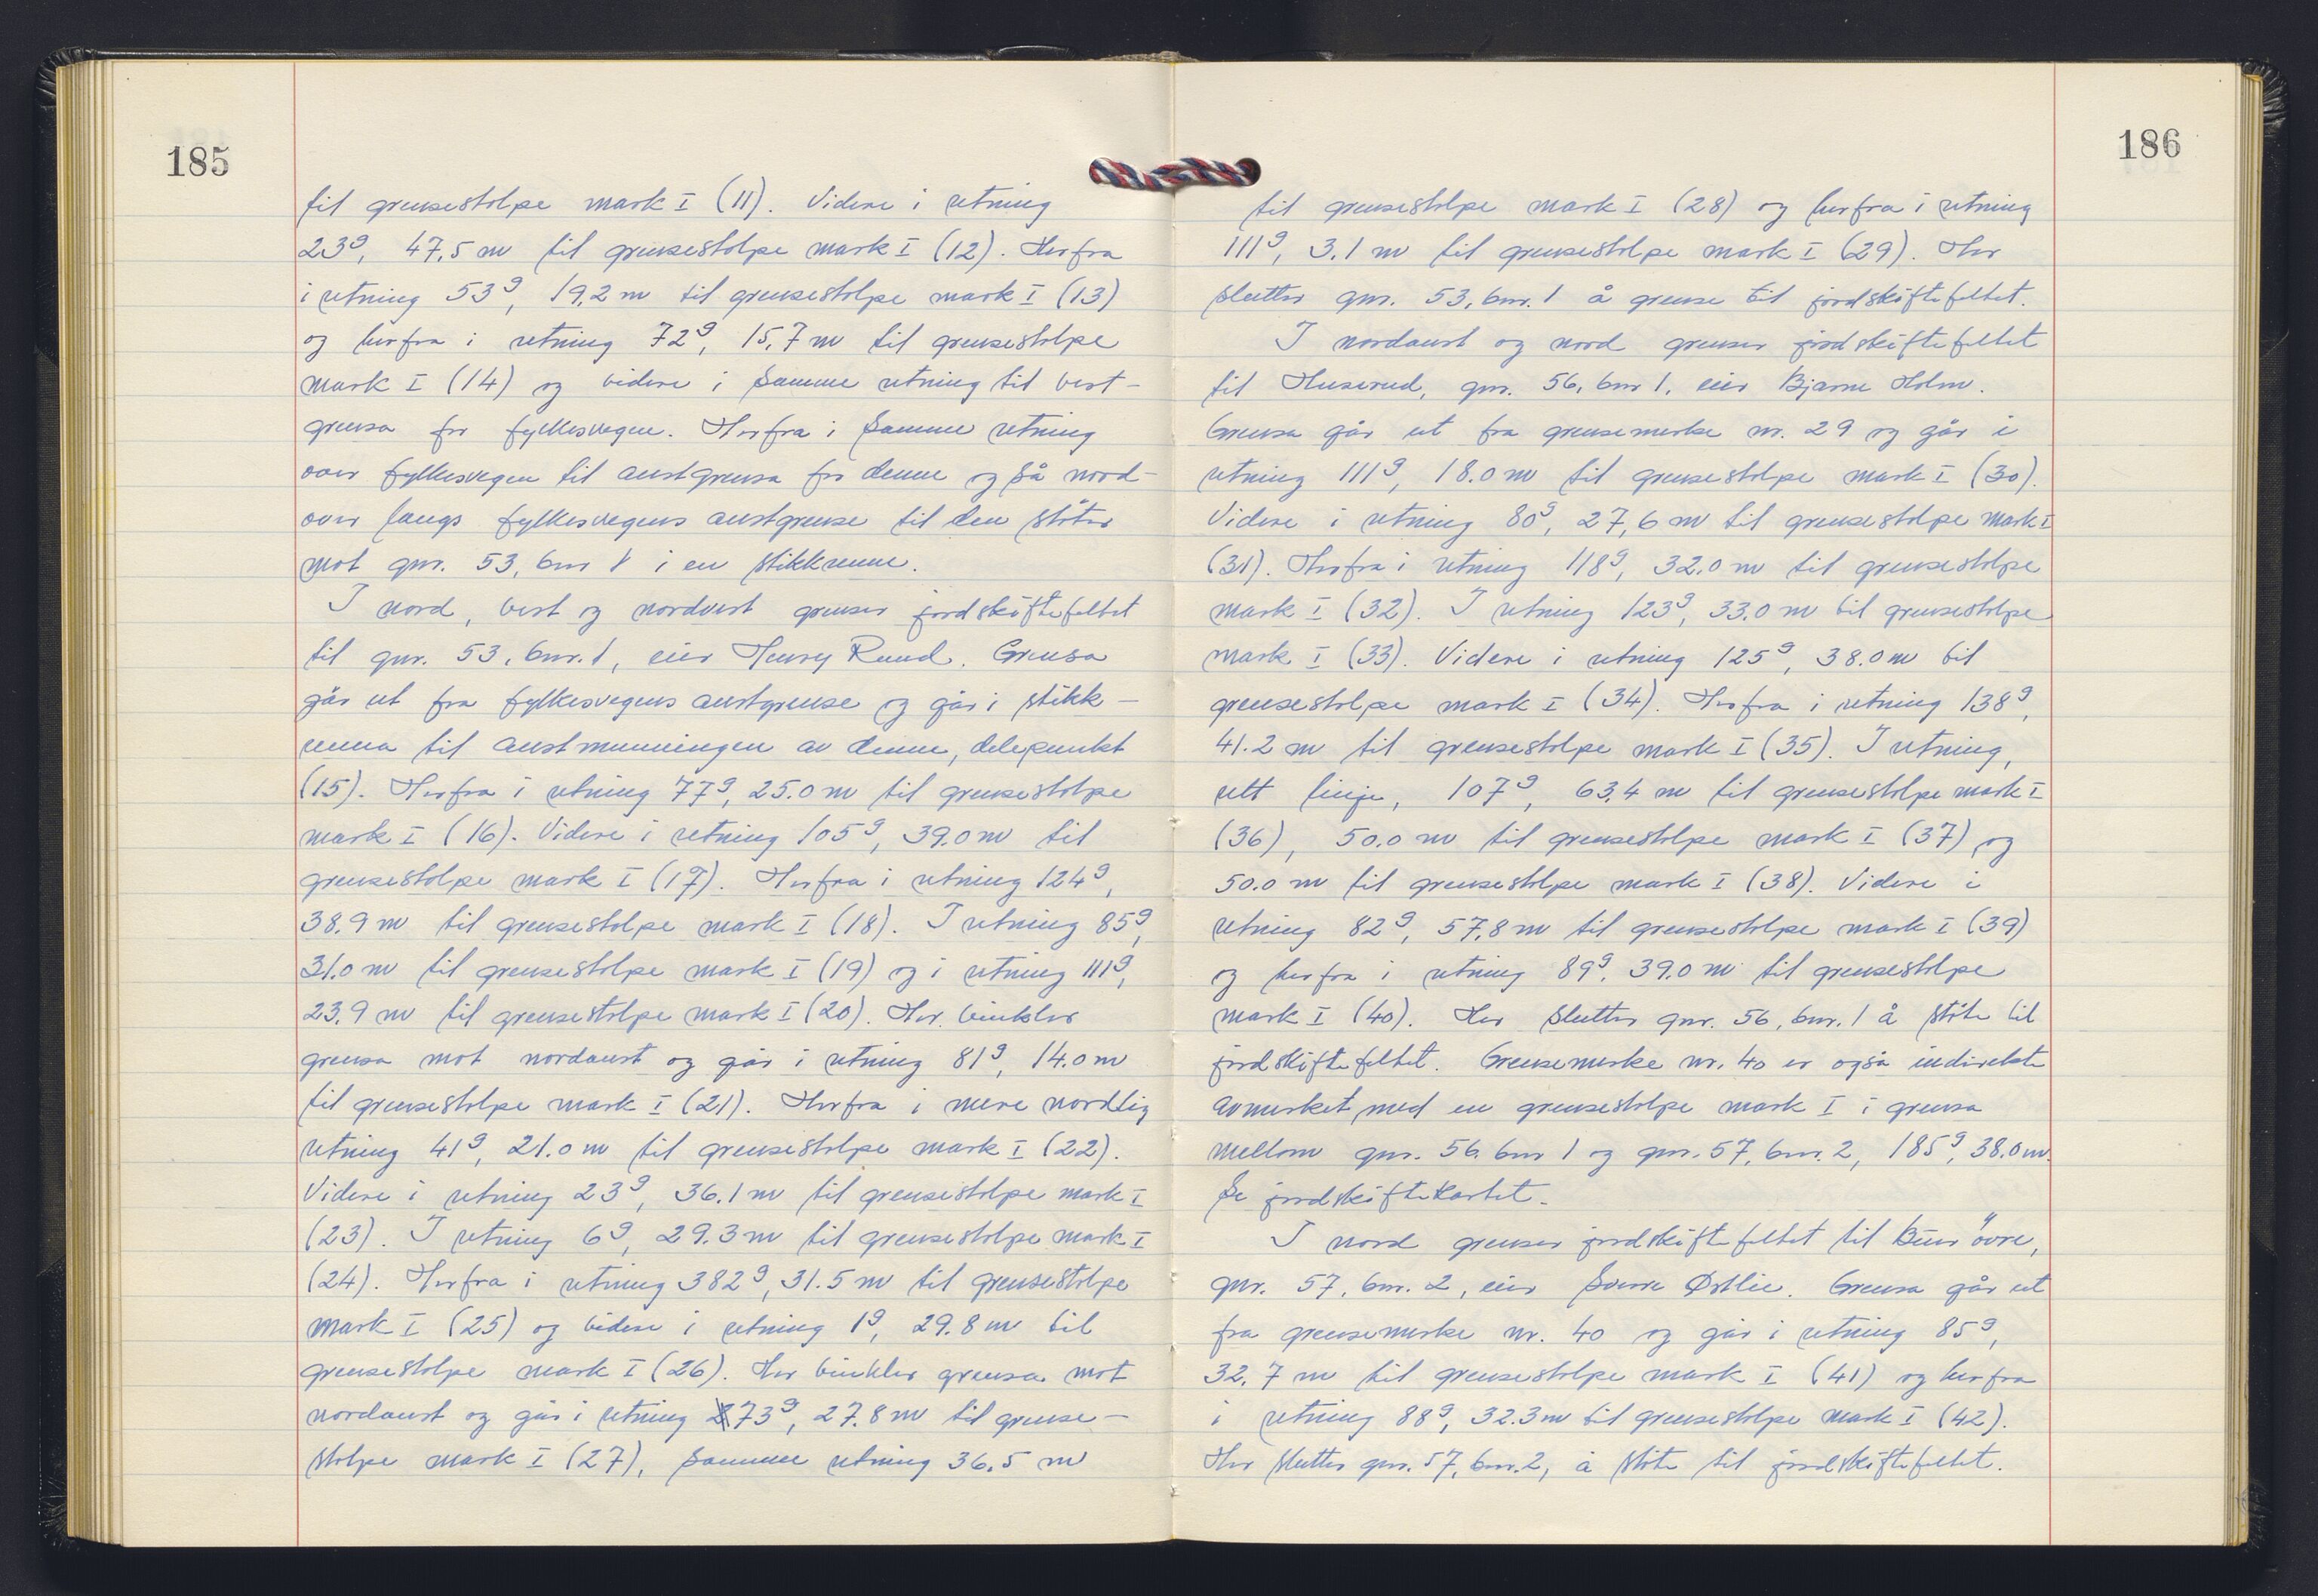 185
til grensestolpe mark I (11). Videre i retning
23g, 47,5 m til grensestolpe mark I (12). Herfra
i retning 53g, 19,2 m til grensestolpe mark I (13)
og herfra i retning 72g, 15,7 m til grensestolpe
mark I (14) og videre i samme retning til vest-
grensa for fylkesvegen. Herfra i samme retning
over fylkesvegen til austgrensa for denne og så nord-
over langs fylkesvegens austgrense til den støter
mot gnr. 53, bnr 1 i en stikkrenne.
I nord, vest og nordvest grenser jordskiftefeltet
til gnr. 53, bnr. 1, eier Henry Ruud. Grensa
går ut fra fylkesvegens austgrense og går i stikk-
renna til austmunningen av denne, delepunkt
(15). Herfra i retning 77g, 25.0 m til grensestolpe
mark I (16). Videre i retning 105g, 39.0 m til
grensestolpe mark I (17). Herfra i retning 124g,
38.9 m til grensestolpe mark I (18). I retning 85g,
31.0 m til grensestolpe mark I (19) og i retning 111g,
23.9 m til grensestolpe mark I (20). Her vinkler
grensa mot nordaust og går i retning 81g, 14.0 m
til grensestolpe mark I (21). Herfra i mere nordlig
retning 41g, 21.0 m til grensestolpe mark I (22).
Videre i retning 23g, 36.1 m til grensestolpe mark I
(23). I retning 6g, 29.3 m til grensestolpe mark I
(24). Herfra i retning 382g, 31.5 m til grensestolpe
mark I (25) og videre i retning 1g, 29.8 m til
grensestolpe mark I (26). Her vinkler grensa mot
nordaust og går i retning 73g, 27.8 m til grense-
stolpe mark I (27), samme retning 36.5 m
186
til grensestolpe mark I (28) og herfra i retning
111g, 3.1 m til grensestolpe mark I (29). Her
slutter gnr. 53, bnr. 1 å grense til jordskiftefeltet.
I nordaust og nord grenser jordskiftefeltet
til Huserud, gnr. 56, bnr 1, eier Bjarne Holm.
Grensa går ut fra grensemerke nr. 29 og går i
retning 111g, 18.0 m til grensestolpe mark I (30).
Videre i retning 80g, 27,6 m til grensestolpe mark I
(31). Herfra i retning 118g, 32.0 m til grensestolpe
mark I (32). I retning 123g, 33.0 m til grensestolpe
mark I (33). Videre i retning 125g, 38.0 m til
grensestolpe mark I (34). Herfra i retning 138g,
41.2 m til grensestolpe mark I (35). I retning,
rett linje, 107g, 63,4 m til grensestolpe mark I
(36), 50.0 m til grensestolpe mark I (37) og
50.0 m til grensestolpe mark I (38). Videre i
retning 82g, 57,8 m til grensestolpe mark I (39)
og herfra i retning 89g, 39.0 m til grensestolpe
mark I (40). Her slutter gnr. 56, bnr. 1 å støte til
jordskiftefeltet. Grensemerke nr. 40 er også indirekte
avmerket med en grensestolpe mark I i grensa
mellom gnr. 56. bnr 1 og gnr. 57, bnr. 2, 185g, 38.0 m.
Se jordskiftekartet.
I nord grenser jordskiftefeltet til Buer övre,
gnr. 57, bnr. 2, eier Sverre Østlie. Grensa går ut
fra grensemerke nr. 40 og går i retning 85g,
32.7 m til grensestolpe mark I (41) og herfra
i retning 88g, 32.3 m til grensestolpe mark I (42).
Her slutter gnr. 57, bnr. 2, å støte til jordskiftefeltet.